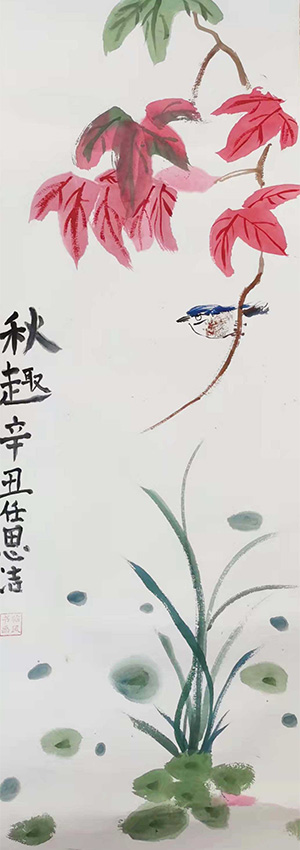 秋趣辛丑任思洁